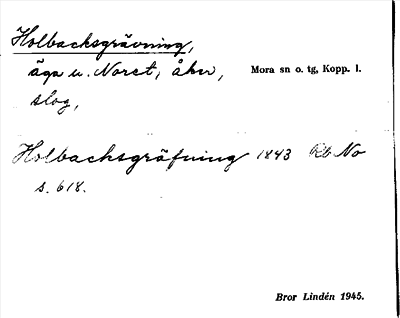 Holbacksgrävning,
äga u. Noret, åker, Mora sn o. tg, Kopp. l.
slog,
Holbachsgräfning 1843 Rb No
s. 618.
Bror Lindén 1945.